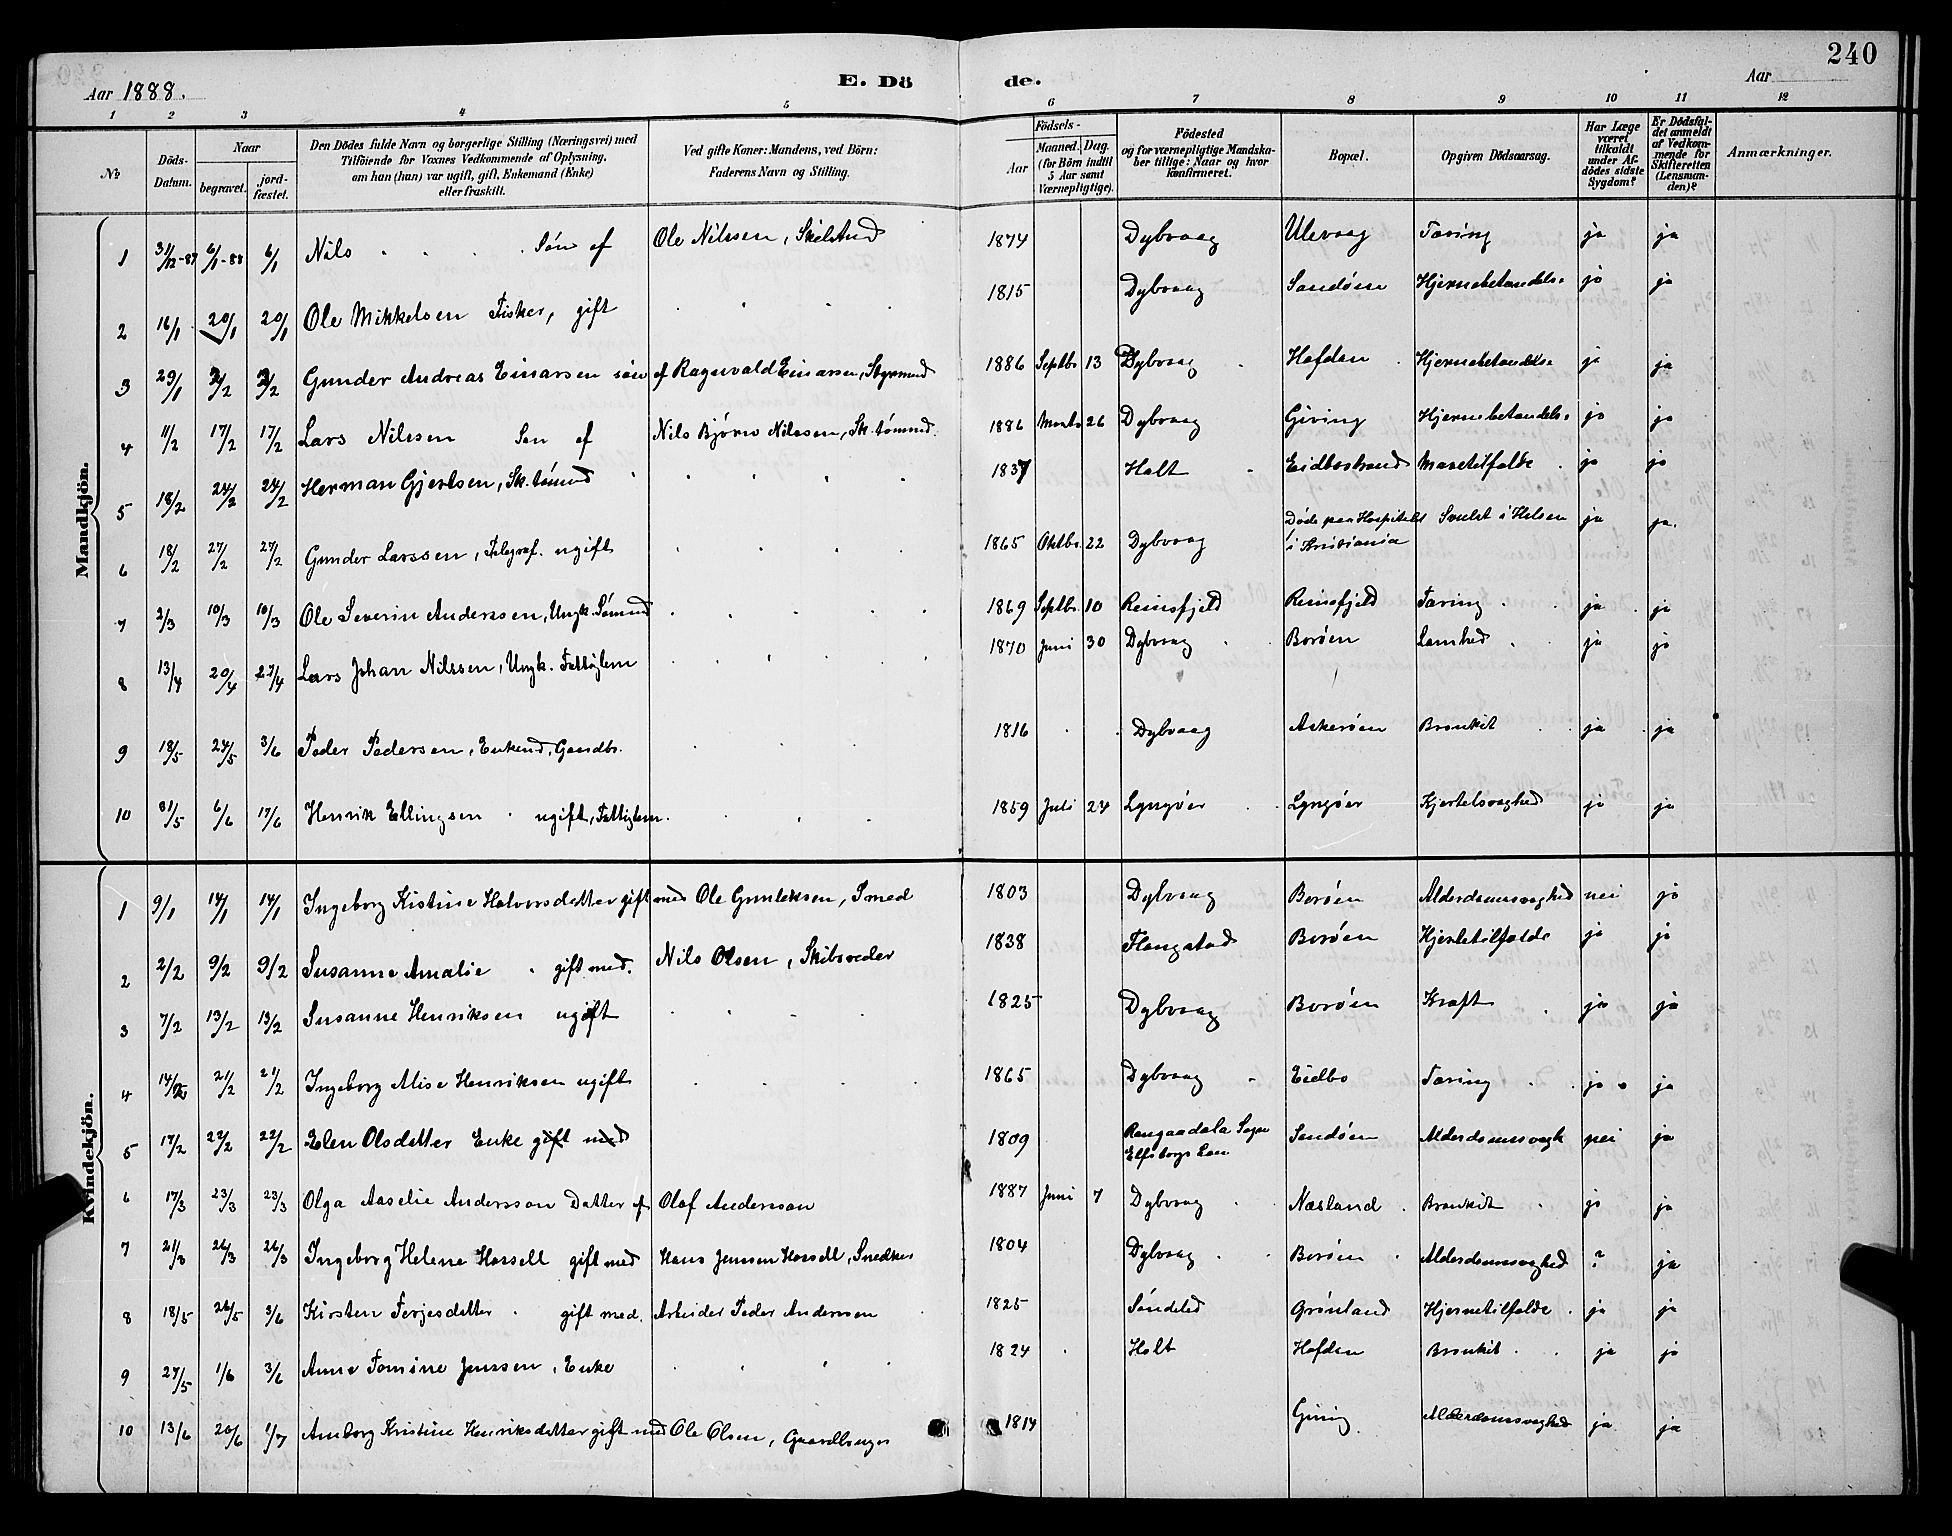 240
Aar 1888.
E. Dö
de.
Aar
1 2 3 4 5 6 7 8 9 10 11 12
№
Döds-
Datum.
Naar
begravet.
jord-
fæstet.
Den Dödes fulde Navn og borgerlige Stilling (Næringsvei) med
Tilföiende for Voxnes Vedkommende af Oplysning,
om han (hun) var ugift, gift, Enkemand (Enke)
eller fraskilt.
Ved gifte Koner: Mandens, ved Börn:
Faderens Navn og Stilling.
Födsels-
Aar
Maaned.
Dag.
(for Börn indtil
5 Aar samt
Værnepligtige).
Födested
og for værnepligtige Mandska-
ber tillige: Naar og hvor
konfirmeret.
Bopæl.
Opgiven Dödsaarsag.
Har Læge
været
tilkaldt
under Af-
dödes sidste
Sygdom?
Er Dödsfal-
det anmeldt
af Vedkom-
mende for
Skifteretten
(Lensman-
den)?
Anmærkninger.
Mandkjön.
1 31/12-87 6/1-88 6/1 Nils Søn af Ole Nilssen, 1874 Dybvaag Ulevaag Tæring ja ja
2 16/1 20/1 20/1 Ole Mikkelsen Fisker, gift 1815 Dybvaag Sandøen Hjernebetændelse ja ja
3 29/1 3/2 3/2 Gunder Andreas Einarsen søn af Ragnvald Einarsen, Styrmand 1886 Septbr 13 Dybvaag Hafdan Hjernebetændelse ja ja
4 11/2 17/2 17/2 Lars Nilssen Søn af Nils Bjørn Nilssen, Sk.tømmd. 1886 26 Dybvaag Giving Hjernebetændelse ja ja
5 18/2 24/2 24/2 Herman Gjertsen, Sk.tømmd 1837 Holt Eidbostrand Mavetilfælde ja ja
6 18/2 27/2 27/2 Gunder Larssen, Telegraf. ugift 1865 Oktbr. 22 Dybvaag Døde paa Hospitalet i Kristiania Svulst i Halsen ja ja.
7 2/3 10/3 10/3 Ole Severin Anderssen, Ungk. Sømand 1869 Septbr. 10 Reinsfjeld Reinsfjeld Tæring ja ja
8 13/4 20/4 27/4 Lars Johan Nilssen, Ungk. Fattiglem 1870 Juni 30 Dybvaag Borøen Lamhed ja ja
9 18/5 24/5 3/6 Peder Pedersen, Enkemd, Gaardbr. 1816 Dybvaag Askerøen Bronkit ja ja
10 31/5 6/6 17/6 Henrik Ellingsen ugift, Fattiglem. 1859 Juli 24 Lyngøer Lyngøer Kjertelsvaghed ja ja
Kvindekjön.
1 9/1 14/1 14/1 Ingeborg Kistine Halvorsdatter gift med Ole Gunleksen, Smed 1803 Dybvaag Borøen Alderdomssvaghed nei ja
2 2/2 9/2 9/2 Susanne Amalie gift med. Nils Olsen, Skibsreder 1838 Flangstad Borøen Hjertetilfælde ja ja
3 7/2 13/2 13/2 Susanne Henriksen ugift 1825 Dybvaag Borøen Kræft ja ja
4 14/2 21/2 21/2 Ingeborg Alise Henriksen ugift 1865 Dybvaag Eidbo Tæring ja ja
5 17/2 22/2 22/2 Elen Olsdatter Enke gift med 1809 Sogn Elfsborgs Len Sandøen Alderdomssvagh nei ja
6 17/3 23/3 23/3 Olga Aaselie Andersson Datter af Olaf Andersson 1887 Juni 7 Dybvaag Næsland Bronkit ja ja
7 21/3 26/3 26/3 Ingeborg Helene Hassell gift med Hans Jenssen Hassell, Snedker 1804 Dybvaag Borøen Alderdomssvaghed ? ja
8 18/5 26/5 3/6 Kirsten Terjesdatter gift med. Arbeider Peder Anderssen 1825 Søndeled Grønland Hjernetilfælde ja ja
9 27/5 1/6 3/6 Anne Tomine Jenssen, Enke 1824 Holt Hafdan Bronkit ja ja
10 13/6 20/6 1/7 Anborg Kristine Henriksdatter gift med Ole Olsen, Gaardbruger 1814 Giving Alderdomssvaghed ja ja